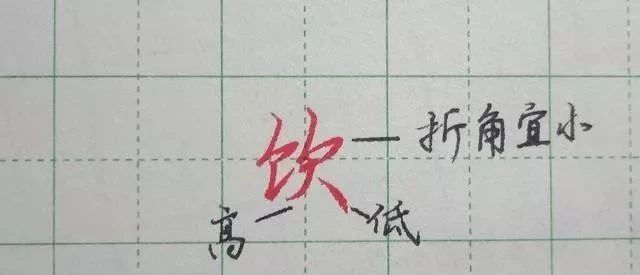 饮
折角宜小
高
低